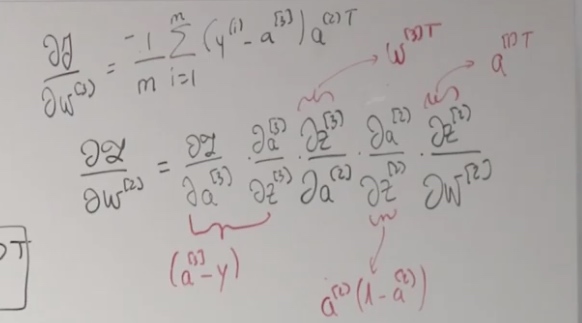 ∂J/∂w^(3) = -1/m Σ_{i=1}^{m} (y^(i) - a^[3]) a^(2)T
w^[3]T
a^[1]T
∂ℒ/∂w^[2] = ∂ℒ/∂a^[3] · ∂a^[3]/∂z^[3] · ∂z^[3]/∂a^[2] · ∂a^[2]/∂z^[2] · ∂z^[2]/∂w^[2]
(a^[3] - y)
a^[2] (1 - a^[2])
T